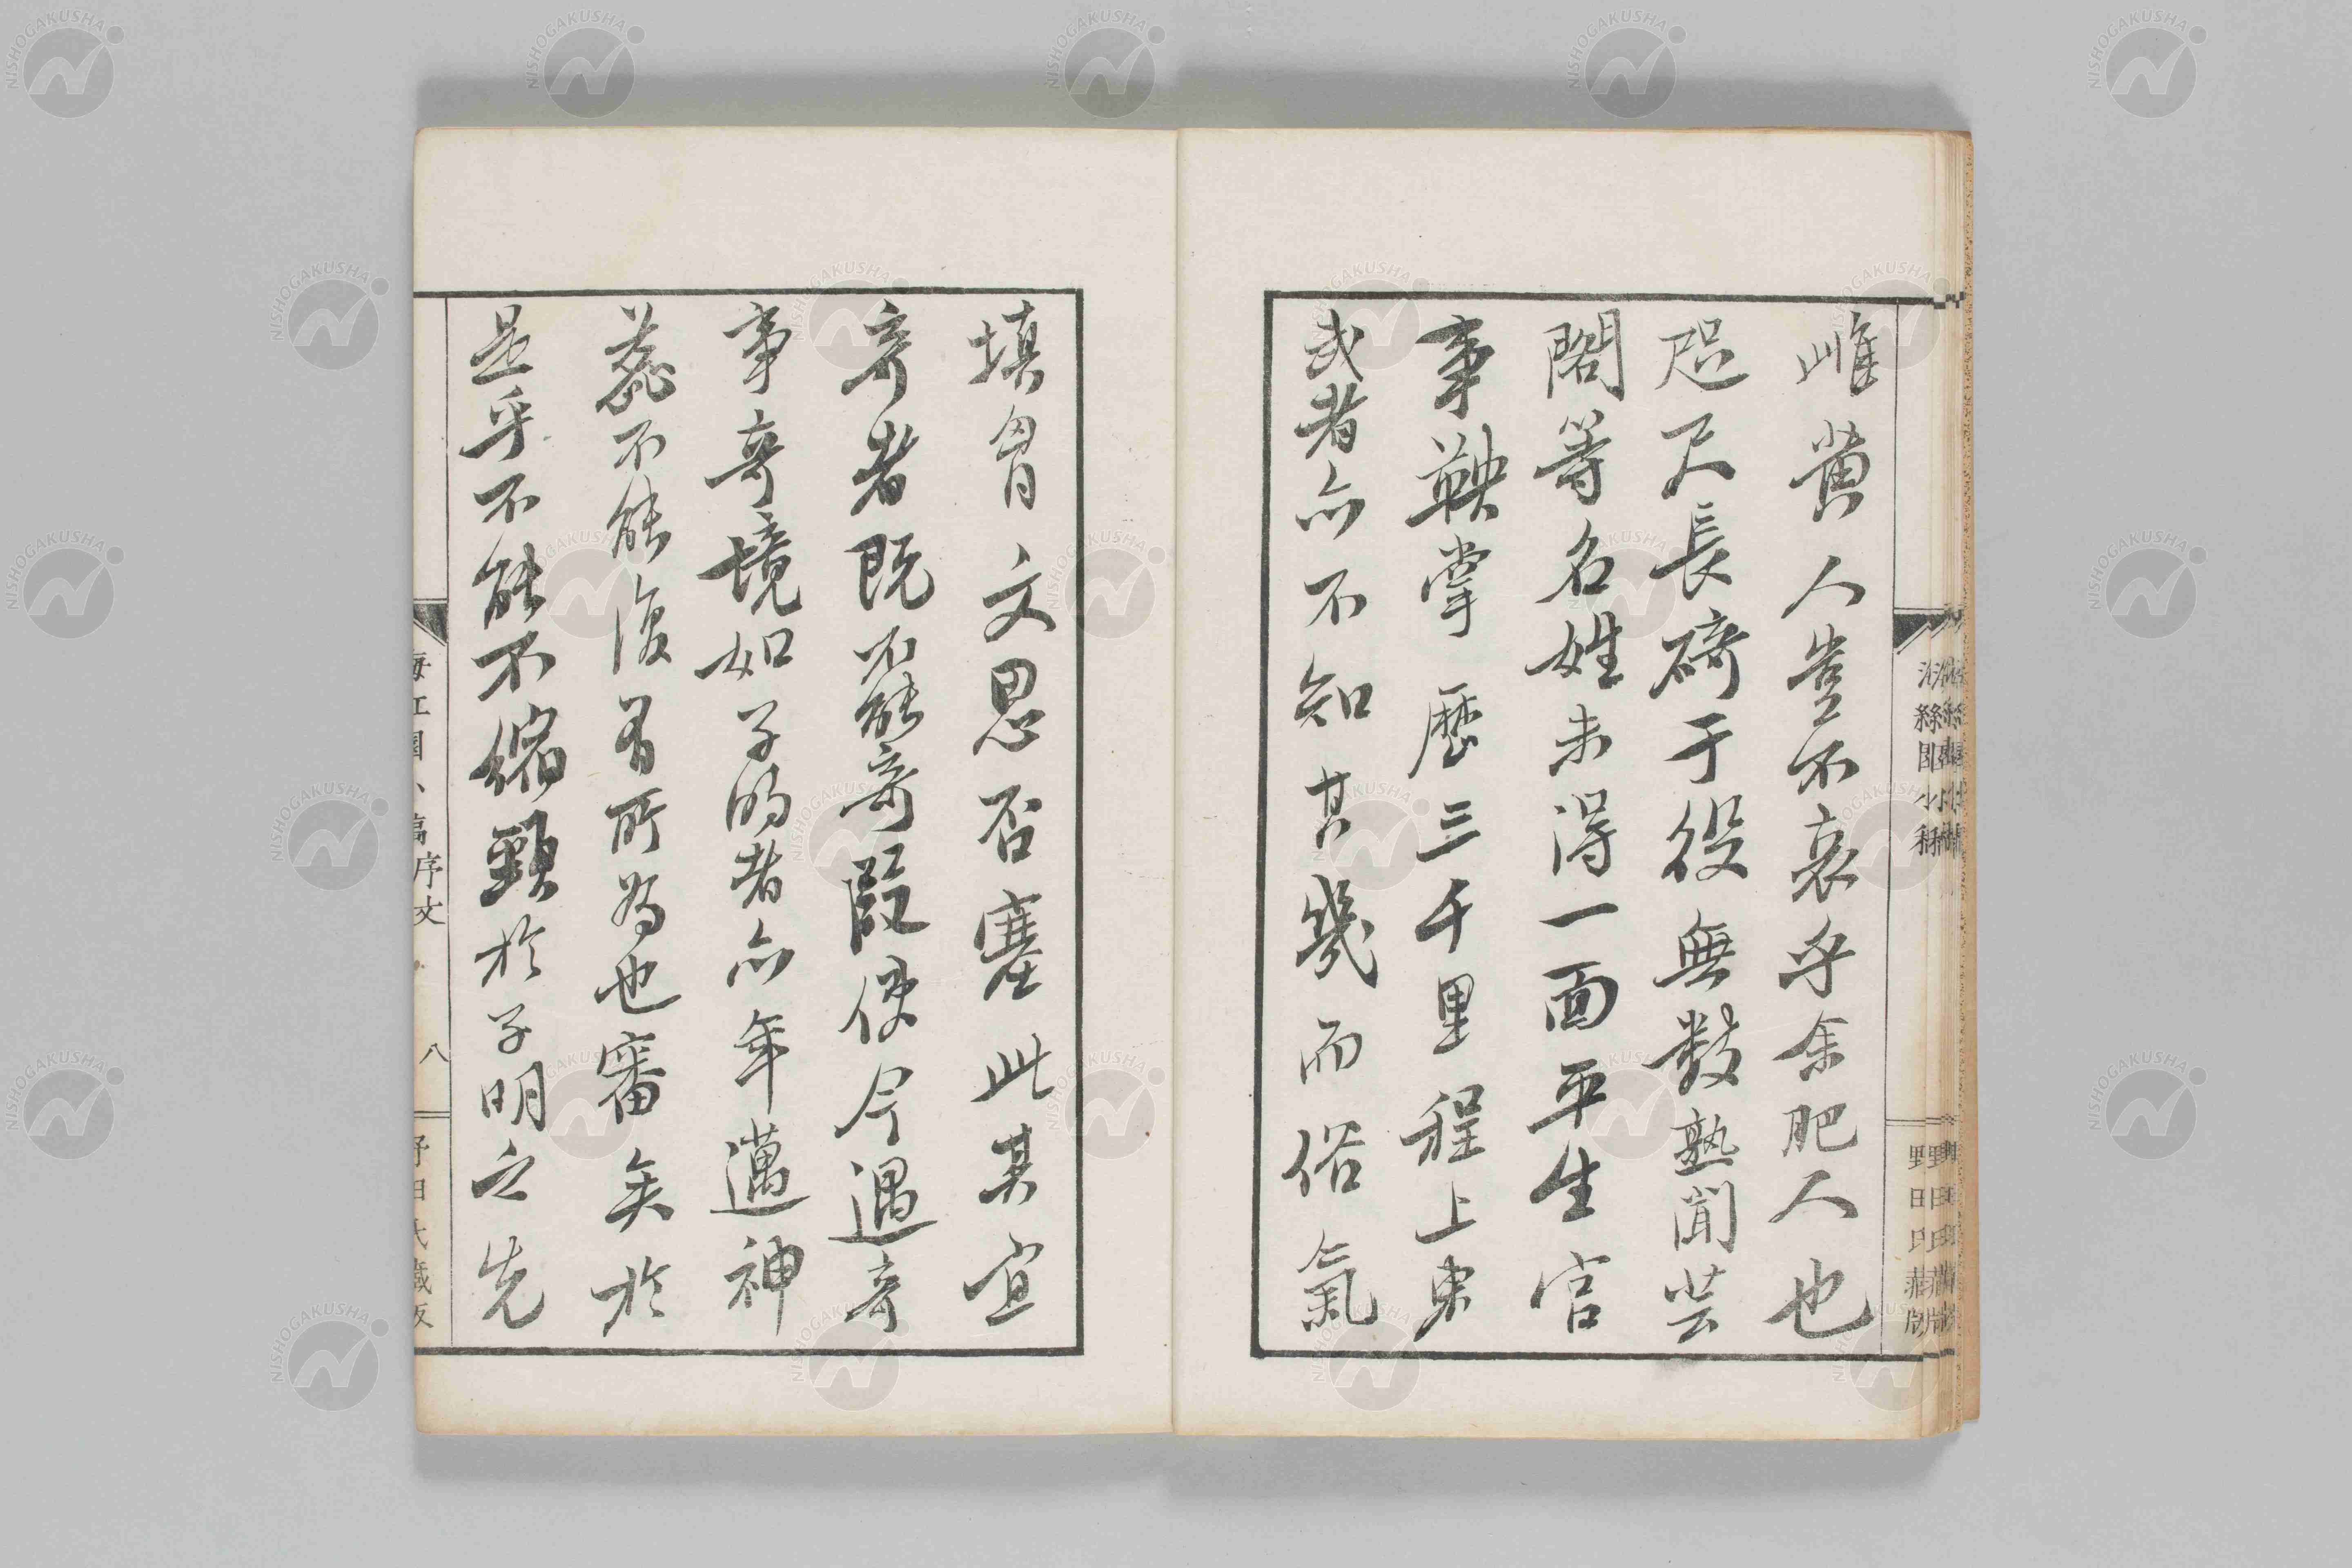 雌黄人豈不哀乎余肥人也
咫尺長碕于役無数熟聞芸
閣等名姓未得一面平生官
事鞅掌歴三千里程上東
武者亦不知其幾而俗氣
填胷文思否塞此其宜
奇者既不能奇叚使今遇奇
事奇境如子的者亦年邁神
蕊不能復有所為也審矣於
是乎不能不縮頸於子明之先
序文 八
野田氏蔵版
NISHOGAKUSHA